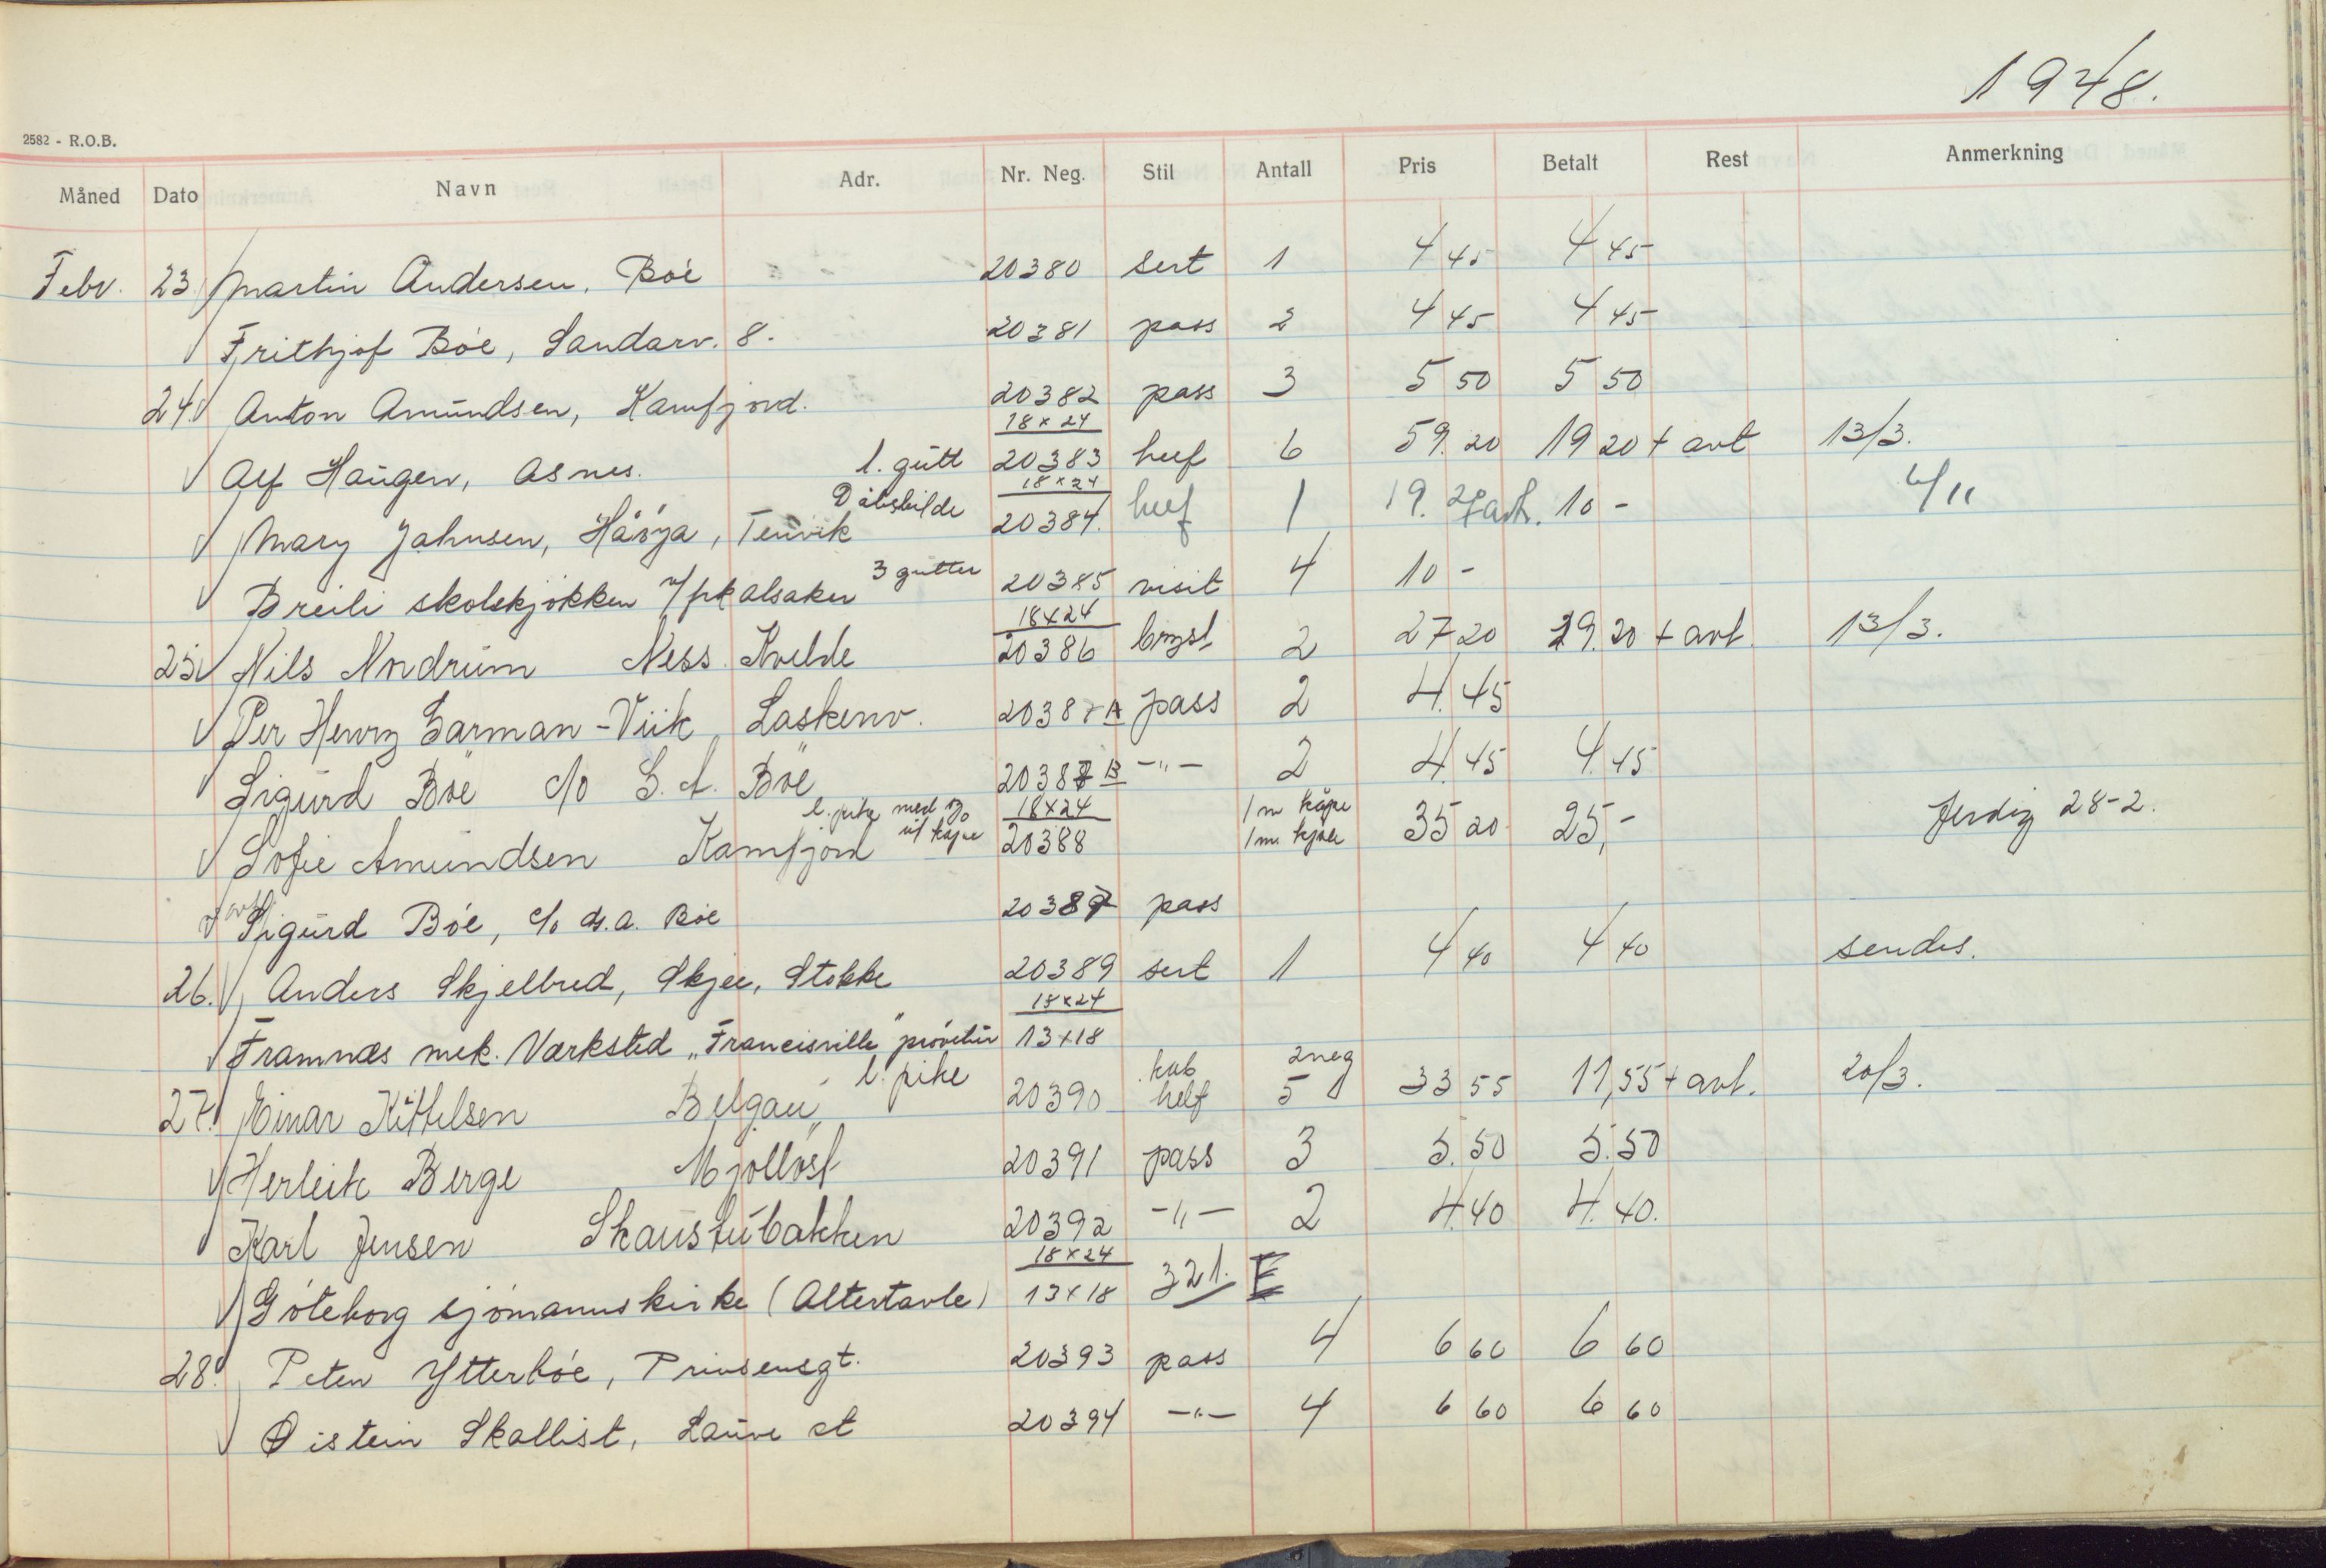 1948.
2582 - R.O.B.
Måned Dato Navn Adr. Nr. Neg. Stil Antall Pris Betalt Rest Anmerkning
Febr. 23. Martin Andersen, Bøe 20380 sert 1 4 45 4 45
Frithjof Bøe, Sandarv. 8. 20381 pass 2 4 45 4 45
24. Anton Amundsen, Kamfjord. 20382 pass 3 5 50 5 50
18x24
Alf Haugen, Asnes. l. gutt 20383 heef 6 59.20 19 20 + avt 13/3.
18x24
Mary Jahnsen, Håøya, Tenvik Dåbsbilde 20384. heef 1 19. 10 - 4/11
Breili skolekjøkken v/frk Alsaker 3 gutter 20385 visit 4 10 -
18x24
25. Nils Nordrum Ness Kvelde 20386 bryst 2 27 20 29.20 + avt. 13/3.
Per Henry Garman-Viik Laskenv. 20387 A pass 2 4.45
Sigurd Bøe c/o S. A. Bøe 20387 B -"- 2 4.45 4.45
18x24
Sofie Amundsen Kamfjord l. pike med og ut kåpe 20388 1 m kåpe 1 m. kjole 35 20 25,- ferdig 28-2.
Sigurd Bøe, c/o S.A. Bøe 20387 pass
26. Anders Skjelbred, Skjee, Stokke 20389 sert 1 4 40 4 40 sendes.
18x24
Framnæs mek. Værksted „Francisville" prøvetur 13x18
27. Einar Kittelsen Belgau l. pike 20390 kab helf 2 neg 5 33 55 11,55 + avt. 20/3.
Herleik Berge Mjølløst 20391 pass 3 5.50 5.50
Karl Jensen Skaustubakken 20392 -"- 2 4.40 4.40.
18x24
Göteborg sjømannskirke (Altertavle) 13x18 321. E
28. Peten Ytterbøe, Prinsensgt. 20393 pass 4 6 60 6 60
Øistein Skallist, Lauve st 20394 -"- 4 6 60 6 60